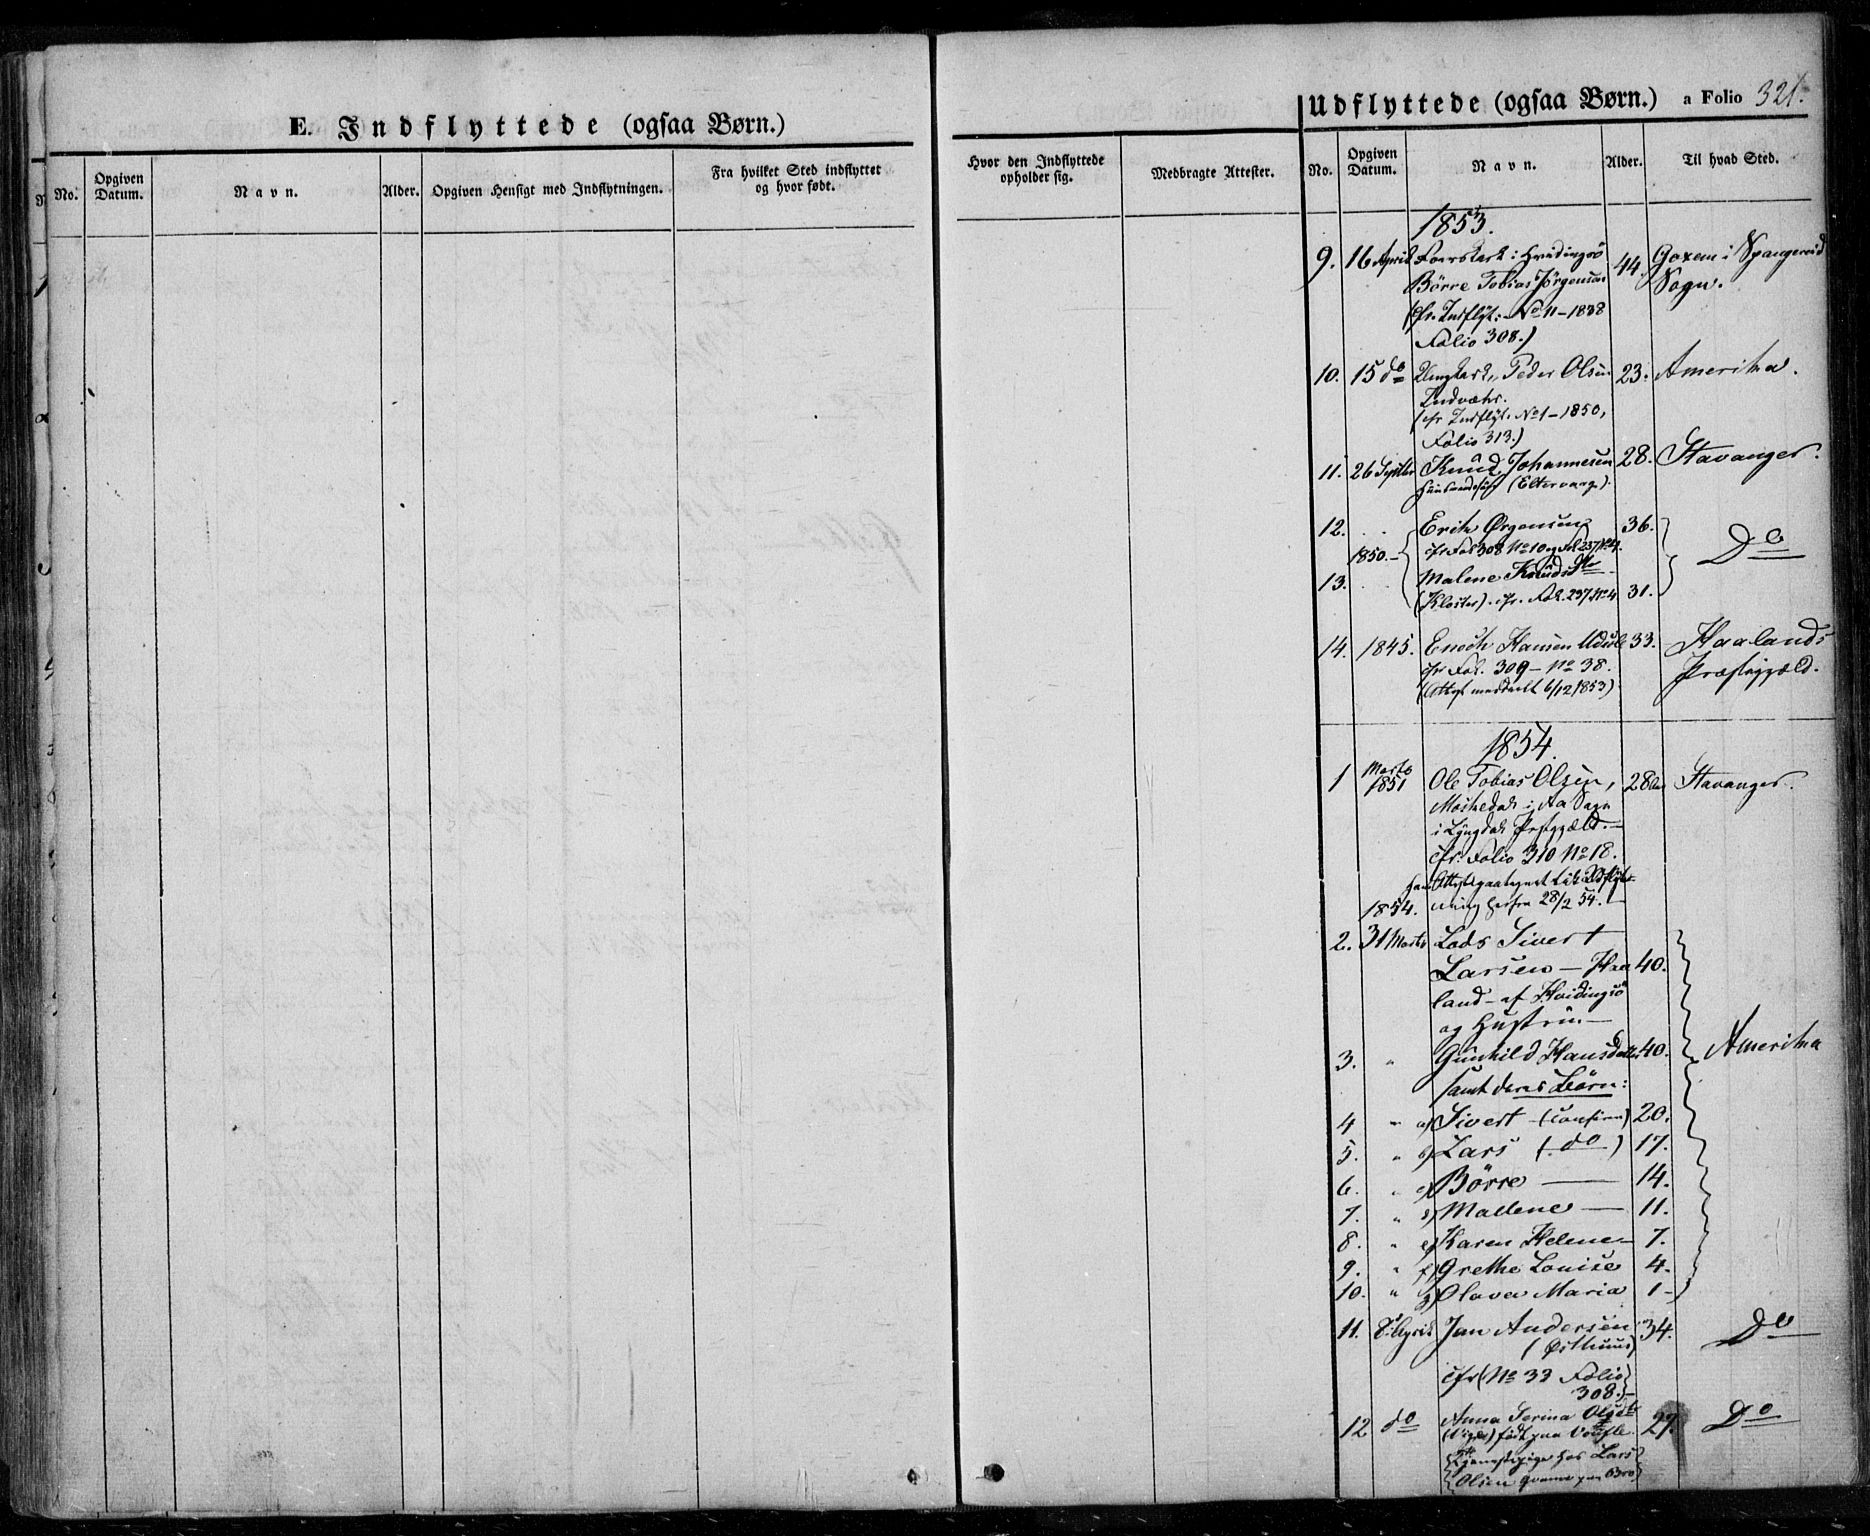 E. Indflyttede (ogsaa Børn.)
No.
Opgiven Datum.
Navn.
Alder.
Opgiven Hensigt med Indflytningen.
Fra hvilket Sted indflyttet og hvor født.
Hvor den Indflyttede opholder sig.
Medbragte Attester.
Udflyttede (ogsaa Børn.) a Folio 321.
No.
Opgiven Datum.
Navn.
Alder.
Til hvad Sted.
1853.
9. 16 April i Hvidingsö 44. i Spangereid
Börre Tobias Jörgensen Sogn.
(cfr. Indflyt: No 11 - 1838
Folio 308.)
10. 15 do Peder Olsen 23. Amerika.
(cfr Indflyt. No 1 - 1850,
Folio 313.)
11. 26 Septbr Knud Johannesen 28. Stavanger.
12. Erik Ørgensen 36.
1850. - cfr Fol 308 No 10 og Fol 237 No 4. Do
13. Malene Knudsdtr
(Kloster). cfr. Fol. 237 No 4 31.
14. 1845. Enoch Hansen 33. Haalands
cfr Fol. 309 - No 38. Præstegjæld.
(Attest meddeelt 6/12 1853)
1854
1 Marts 1851 Ole Tobias Olsen, 28 Stavanger.
i Aa Sogn
i Lyngdal Præstegjæld. -
cfr. Folio 310 No 18.
1854. herfra 28/2 54.
2. 31 Marts Lods Sivert
Larsen - Haa 40.
land - af Hvidingsö
og Hustru -
3. " Gunhild Hansdatter 40. Amerika
samt deres Börn:
4 " a) Sivert (confirm) 20.
5. " b) Lars (do) 17.
6. " c) Börre - 14.
7. " d) Malene - 11.
8. " e) Karen Helene - 7.
9. " f) Grethe Louise 4.
10. " g) Olava Maria 1 -
11. April Jan Andersen 34. Do
(Østhuus)
cfr (No 33 Folio
308.) -
12 do Anna Serina Olsdtr 29. Do
født paa
Tjenestepige hos Lars
Olsen